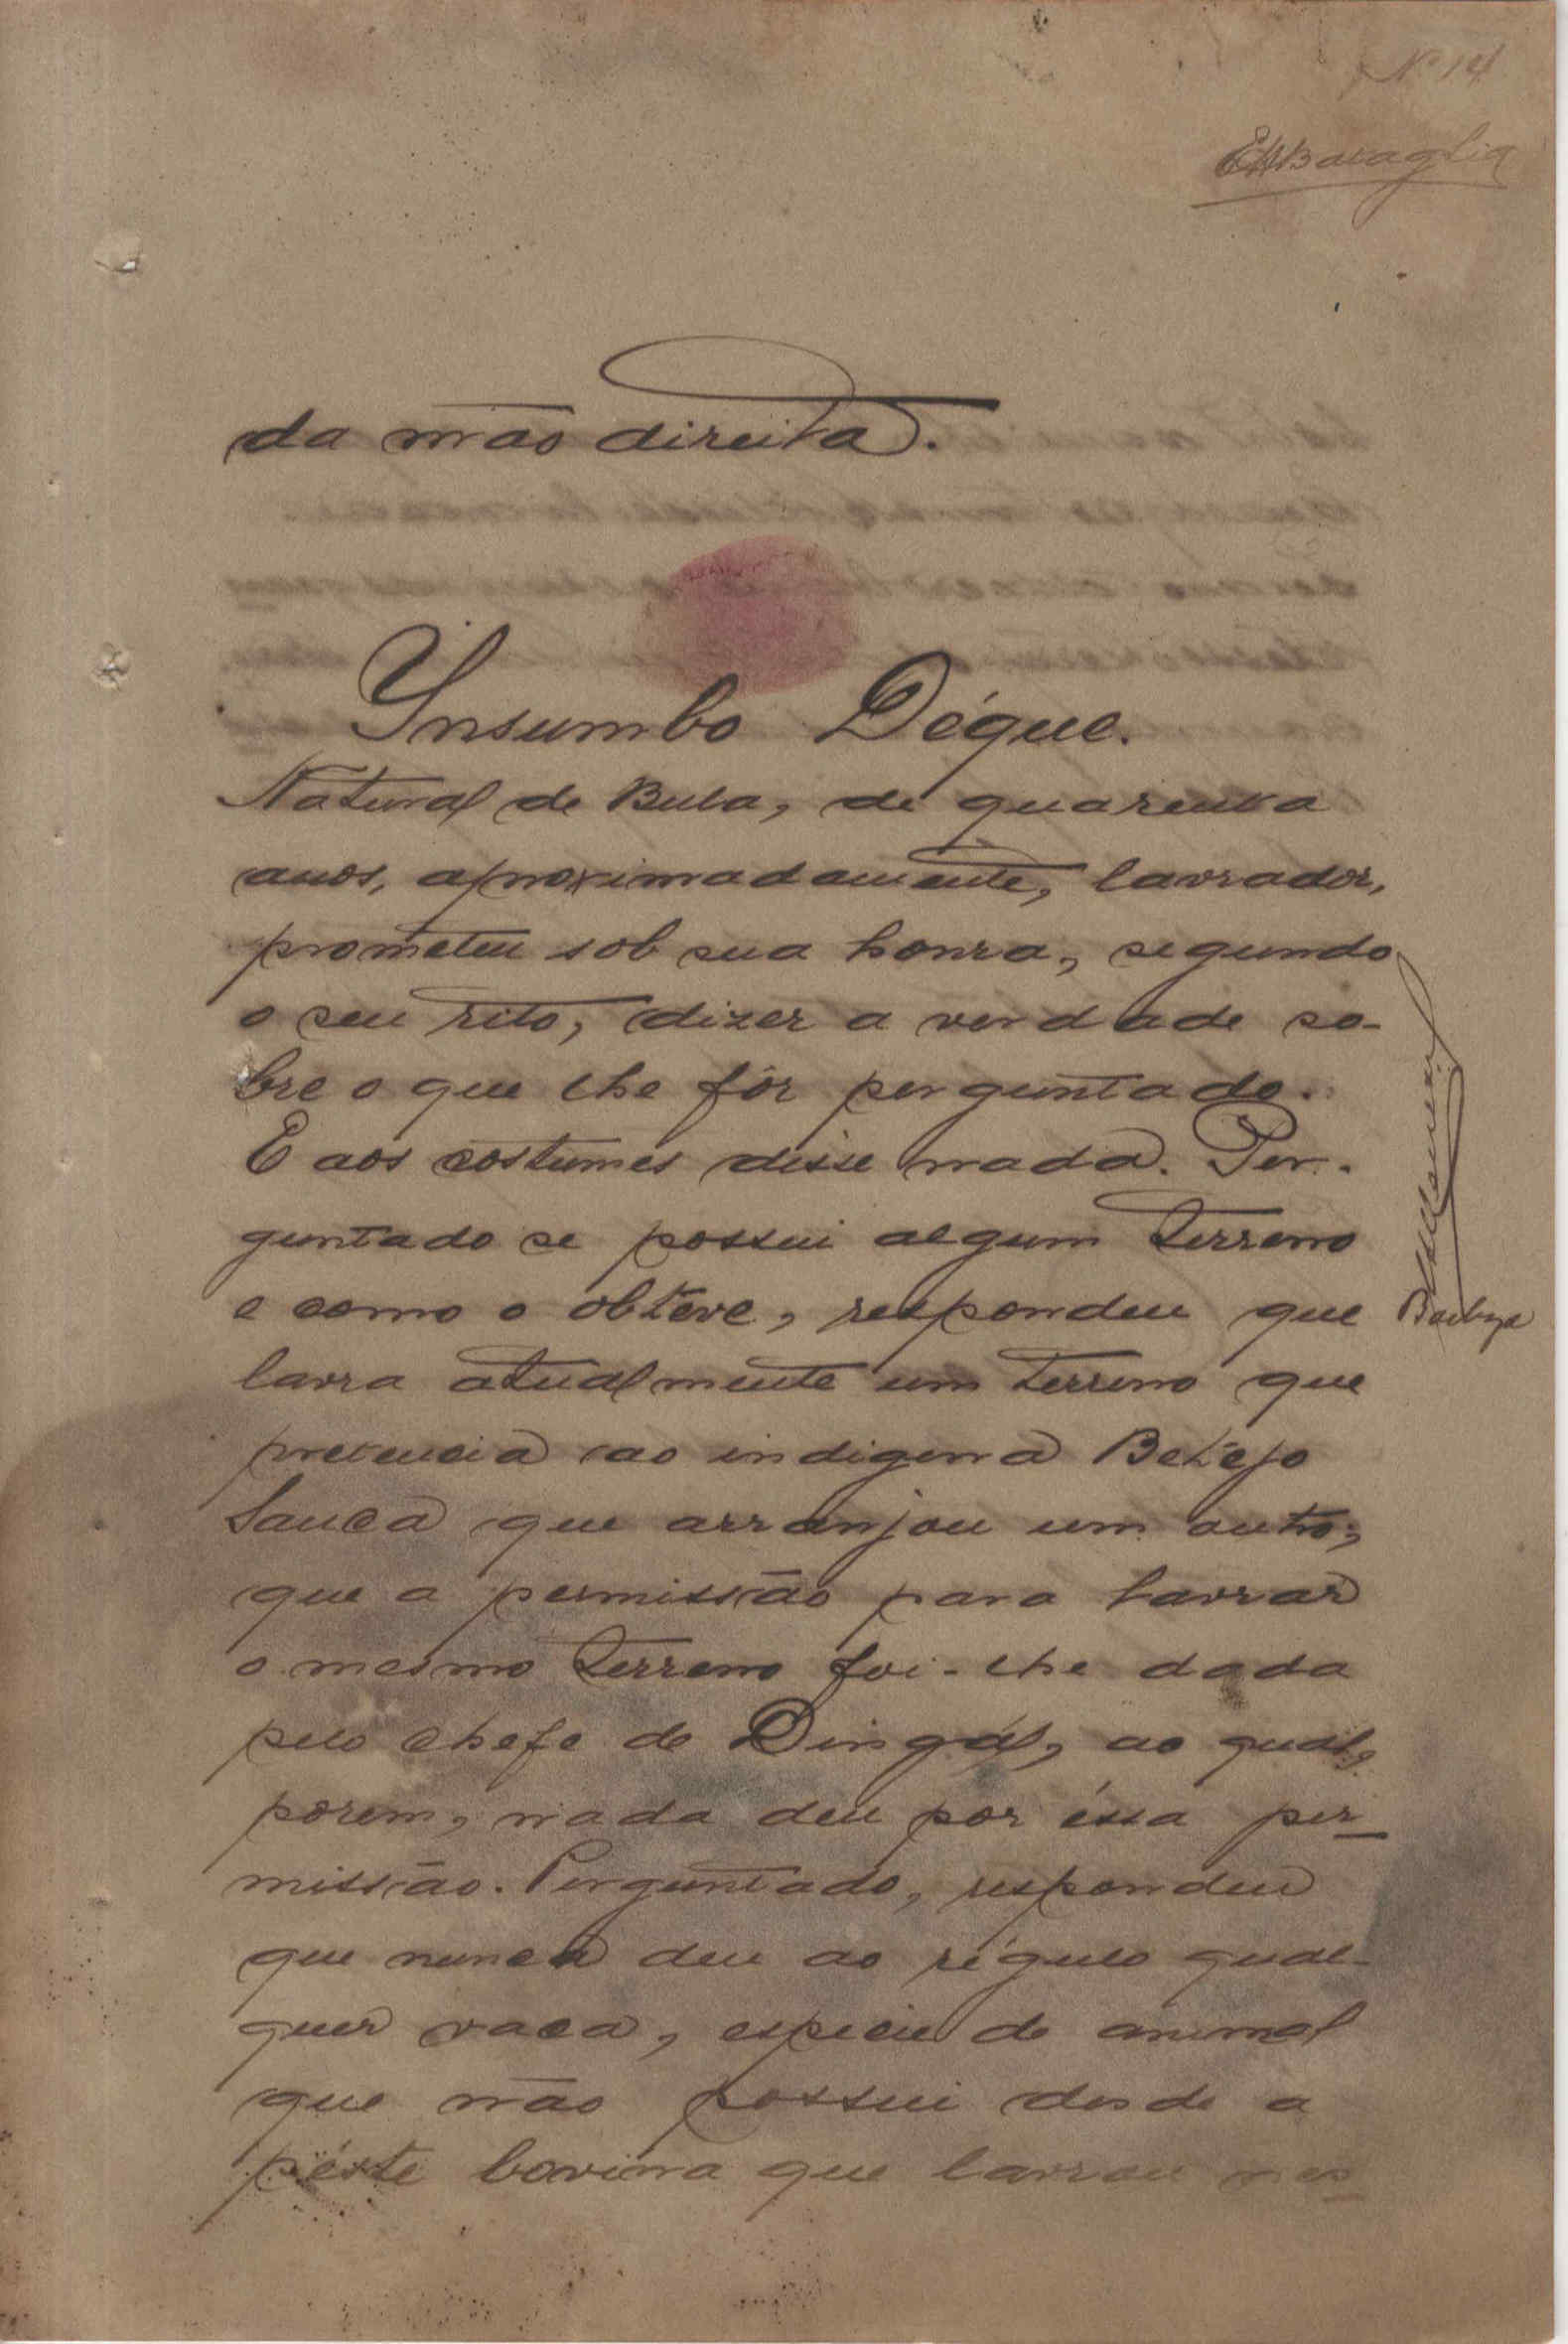 Nº 14
da mão direita.
Insumbo Déque.
Natural de Bula, de quarenta
anos, aproximadamente, lavrador,
prometeu sob sua honra, segundo
o seu rito, dizer a verdade so-
bre o que lhe fôr perguntado.
E aos costumes disse nada. Per-
guntado se possui algum terreno
e como o obteve, respondeu que
lavra atualmente um terreno que
pretencia ao indigena Betejo
Sanca que arranjou um outro;
que a permissão para lavrar
o mesmo terreno foi-lhe dada
pelo chefe de Dingal, ao qual,
porem, nada deu por éssa per-
missão. Perguntado, respondeu
que nunca deu ao régulo qual-
quer vaca, especie de animal
que não possui desde a
péste bovina que lavrou nes-